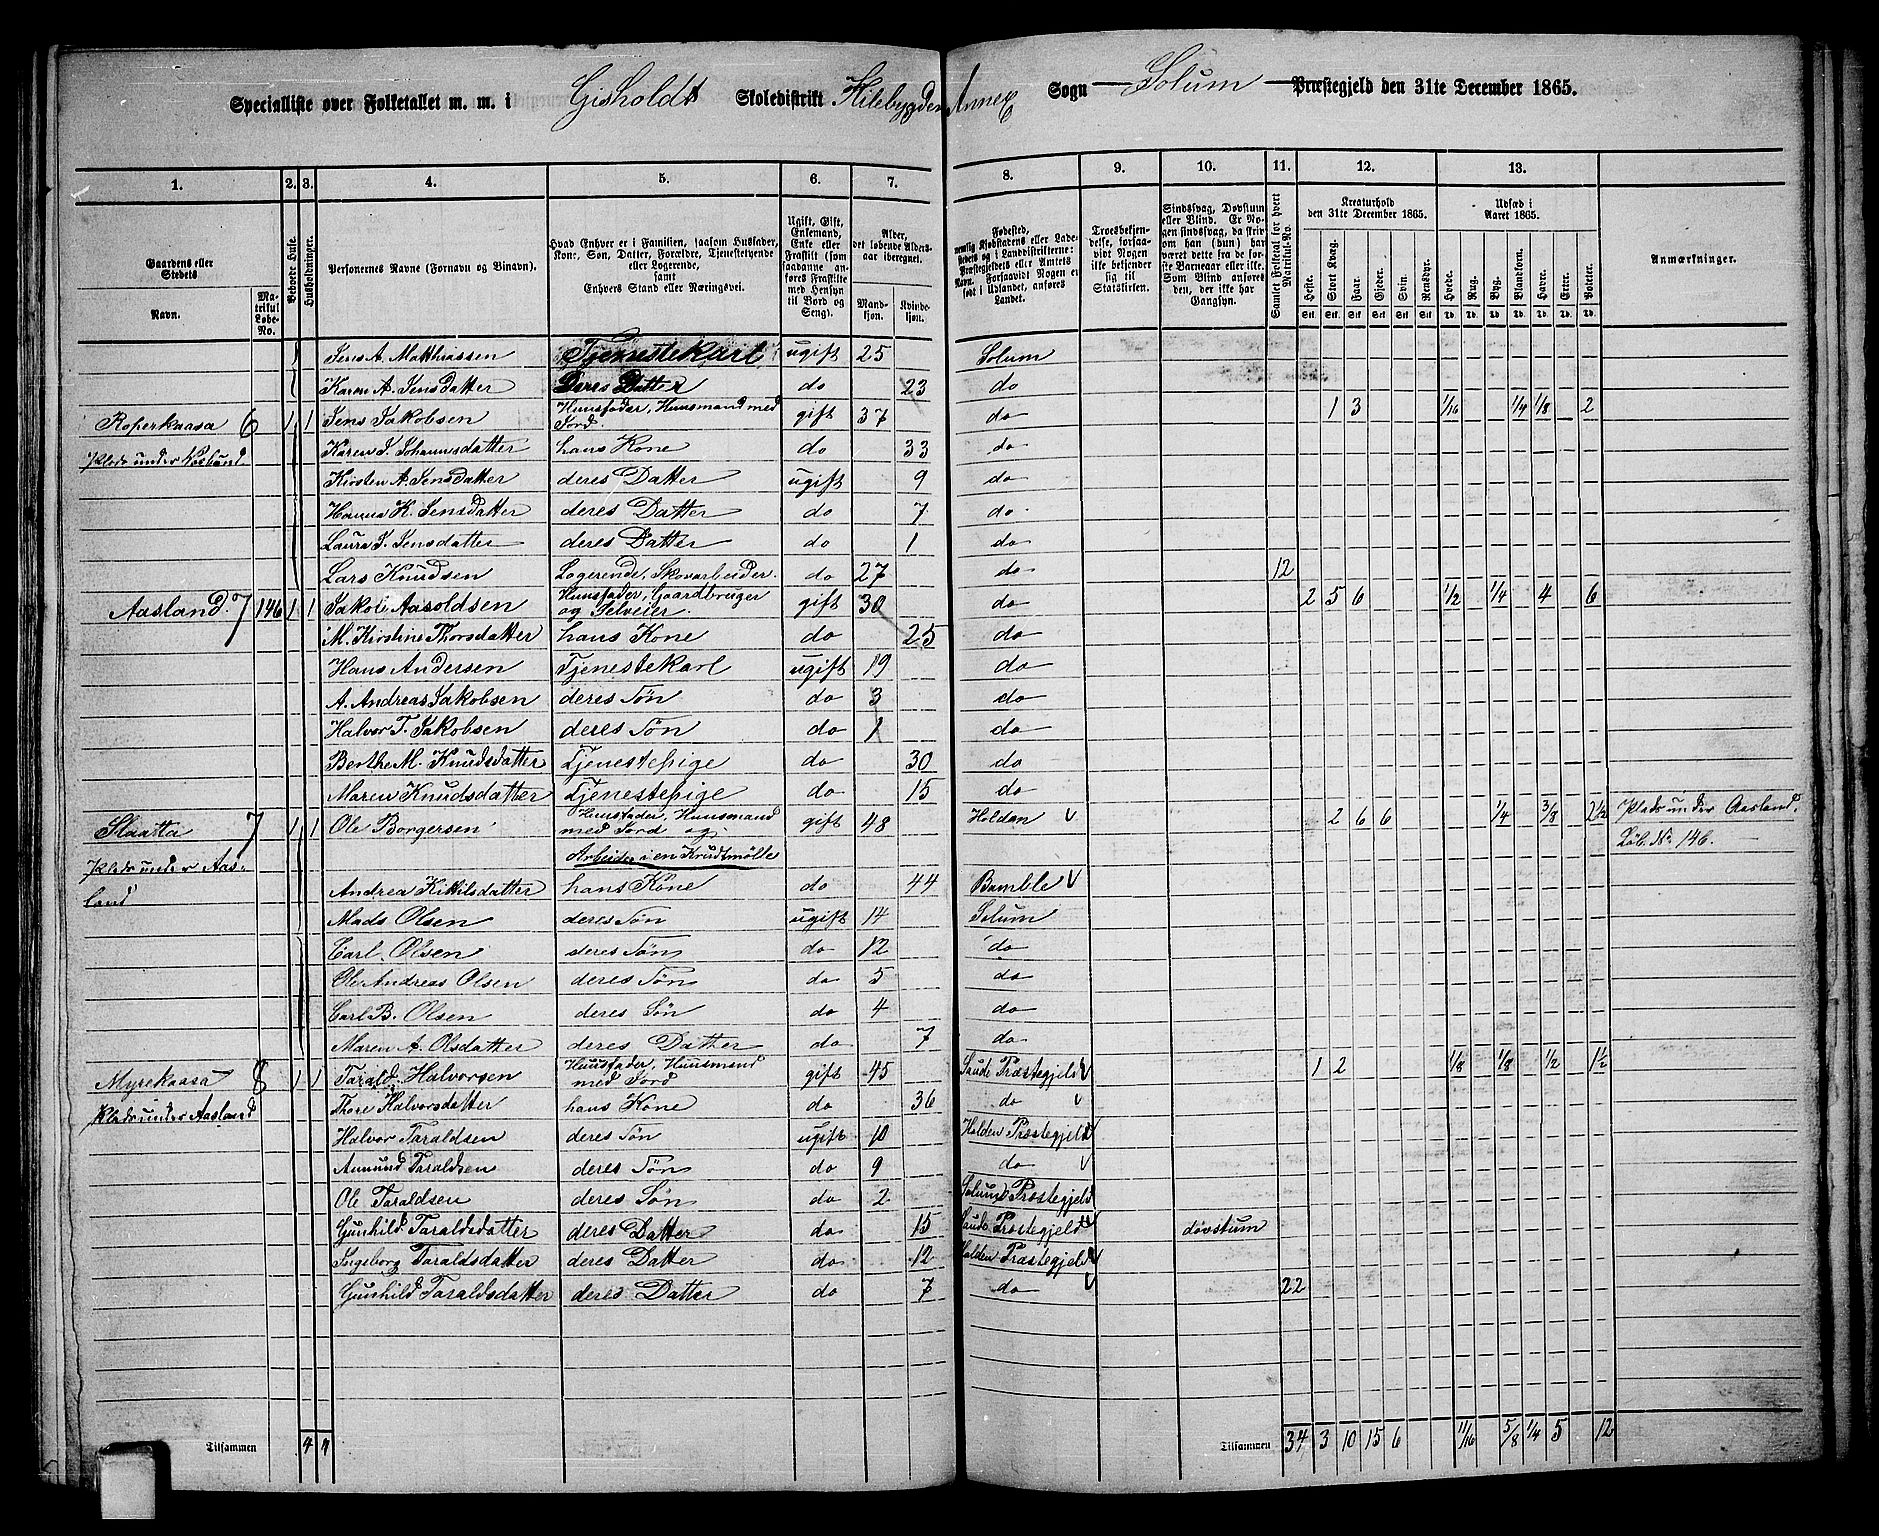 Specialliste over Folketallet m. m. i Gisholdt Skoledistrikt Kilebygden Annex Sogn Solum Præstegjeld den 31te December 1865.
1. 2. 3. 4. 5. 6. 7. 8. 9. 10. 11. 12. 13.
Gaardens eller Stedets
Navn.
Matrikul Løbe-No.
Beboede Huse.
Husholdninger.
Personernes Navne (Fornavn og Binavn).
Hvad Enhver er i Familien, saasom Husfader, Kone, Søn, Datter, Forældre, Tjenestetyende eller Logerende, samt Enhvers Stand eller Næringsvei.
Ugift, Gift, Enkemand, Enke eller Fraskilt (som saadanne anføres Fraskilte med Hensyn til Bord og Seng).
Alder, det løbende Aldersaar iberegnet.
Mandkjøn. Kvindekjøn.
Fødested, nemlig Kjøbstadens eller Ladestedets og i Landdistrikterne: Præstegjeldets eller Amtets Navn. Forsaavidt Nogen er født i Udlandet, anføres Landet.
Troesbekjendelse, forsaavidt Nogen ikke bekjender sig til Statskirken.
Sindssvag, Døvstum eller Blind. Er Nogen sindssvag, da skrives om han (hun) har været dette fra de første Barneaar eller ikke. Som Blind anføres den, der ikke har Gangsyn.
Samlet Folketal for hvert Matrikul-No.
Kreaturhold den 31te December 1865.
Heste. Stort Kvæg. Faar. Gjeder. Svin. Rensdyr.
Udsæd i Aaret 1865.
Hvede. Rug. Byg. Blandkorn. Havre. Erter. Poteter.
Anmærkninger.
Jens A. Matthiassen Tjenestekarl ugift 25 Solum
Karen A. Jensdatter Deres Datter do 23 do
Roperkaasa 6 1 1 Jens Jakobsen Huusfader, Huusmand med Jord gift 37 do 1 3 1/16 1/4 1/8 2
Plads under Karen J. Johannsdatter hans Kone do 33 do
Kirsten A. Jensdatter deres Datter ugift 9 do
Hanna K. Jensdatter deres Datter do 7 do
Laura J. Jensdatter deres Datter do 1 do
Lars Knudsen Logerende, Skovarbeider. do 27 do 12
Aasland. 7 146 1 1 Jakob Aasoldsen Huusfader, Gaardbruger og Selveier. gift 30 do 2 5 6 1/2 1/4 4 6
M. Kirstine Thorsdatter hans Kone do 25 do
Hans Andersen Tjenestekarl ugift 19 do
A. Andreas Jakobsen deres Søn do 3 do
Halvor T. Jakobsen deres Søn do 1 do
Berthe M. Knudsdatter Tjenestepige do 30 do
Maren Knudsdatter Tjenestepige do 15 do
Slaatta 7 1 1 Ole Borgersen Huusfader, Huusmand med Jord og gift 48 Holdan V 2 6 6 1/4 3/8 2 1/2 Plads under Aasland.
Plads under Aasland Arbeider i en Krudtmølle Løb. No 146.
Andrea Kittilsdatter hans Kone do 44 Bamble V
Mads Olsen deres Søn ugift 14 Solum
Carl. Olsen deres Søn do 12 do
Ole Andreas Olsen deres Søn do 5 do
Carl B. Olsen deres Søn do 4 do
Maren A. Olsdatter deres Datter do 7 do
Myrekaasa 8 1 1 Tarald. Halvorsen Huusfader, Huusmand med Jord gift 45 Saude Præstegjeld V 1 2 1/8 1/8 1/2 1 1/2
Plads under Aasland Thore Halvorsdatter hans Kone do 36 do V
Halvor Taraldsen deres Søn ugift 10 Holden Præstegjeld V
Amund Taraldsen deres Søn do 9 do V
Ole Taraldsen deres Søn do 2 Solum Præstegjeld
Gunhild Taraldsdatter deres Datter do 15 Saude Præstegjeld V døvstum
Ingeborg Taraldsdatter deres Datter do 12 Holden Præstegjeld V
Gunhild Taraldsdatter deres Datter do 7 do V 22
Tilsammen 4 4 Tilsammen 34 3 10 15 6 11/16 5/8 1/4 5 12